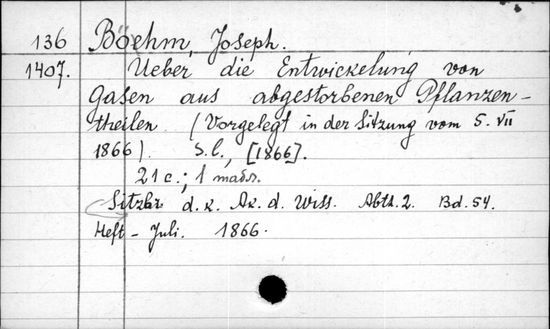 136 Böehm, Joseph.
1407. Ueber die Entwickelung von
Gasen aus abgestorbenen Pflanzen-
theilen. (Vorgelegt in der Sitzung vom 5. VII
1866). S.l., [1866].
21 c.; 1 табл.
Sitzbr d. k. Ak. d. Wiss. Abth. 2. Bd. 54.
Heft - Juli. 1866.